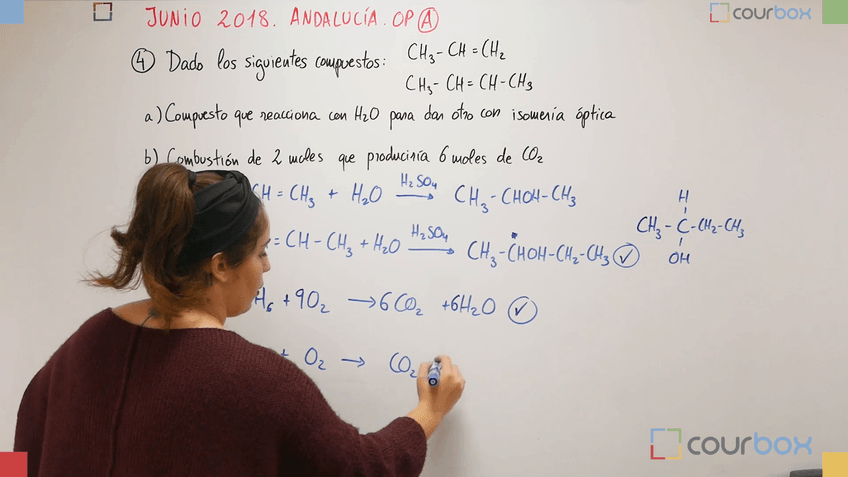 JUNIO 2018. ANDALUCÍA. OP A
courbox
④ Dado los siguientes compuestos: CH₃-CH=CH₂
CH₃-CH=CH-CH₃
a) Compuesto que reacciona con H₂O para dar otro con isomería óptica
b) Combustión de 2 moles que produciría 6 moles de CO₂
CH=CH₃ + H₂O H₂SO₄ → CH₃-CHOH-CH₃
=CH-CH₃+H₂O H₂SO₄ → CH₃-CHOH-CH₂-CH₃ ✓
H
CH₃-C-CH₂-CH₃
OH
H₆ +9O₂ →6CO₂ +6H₂O ✓
+ O₂ → CO₂
courbox